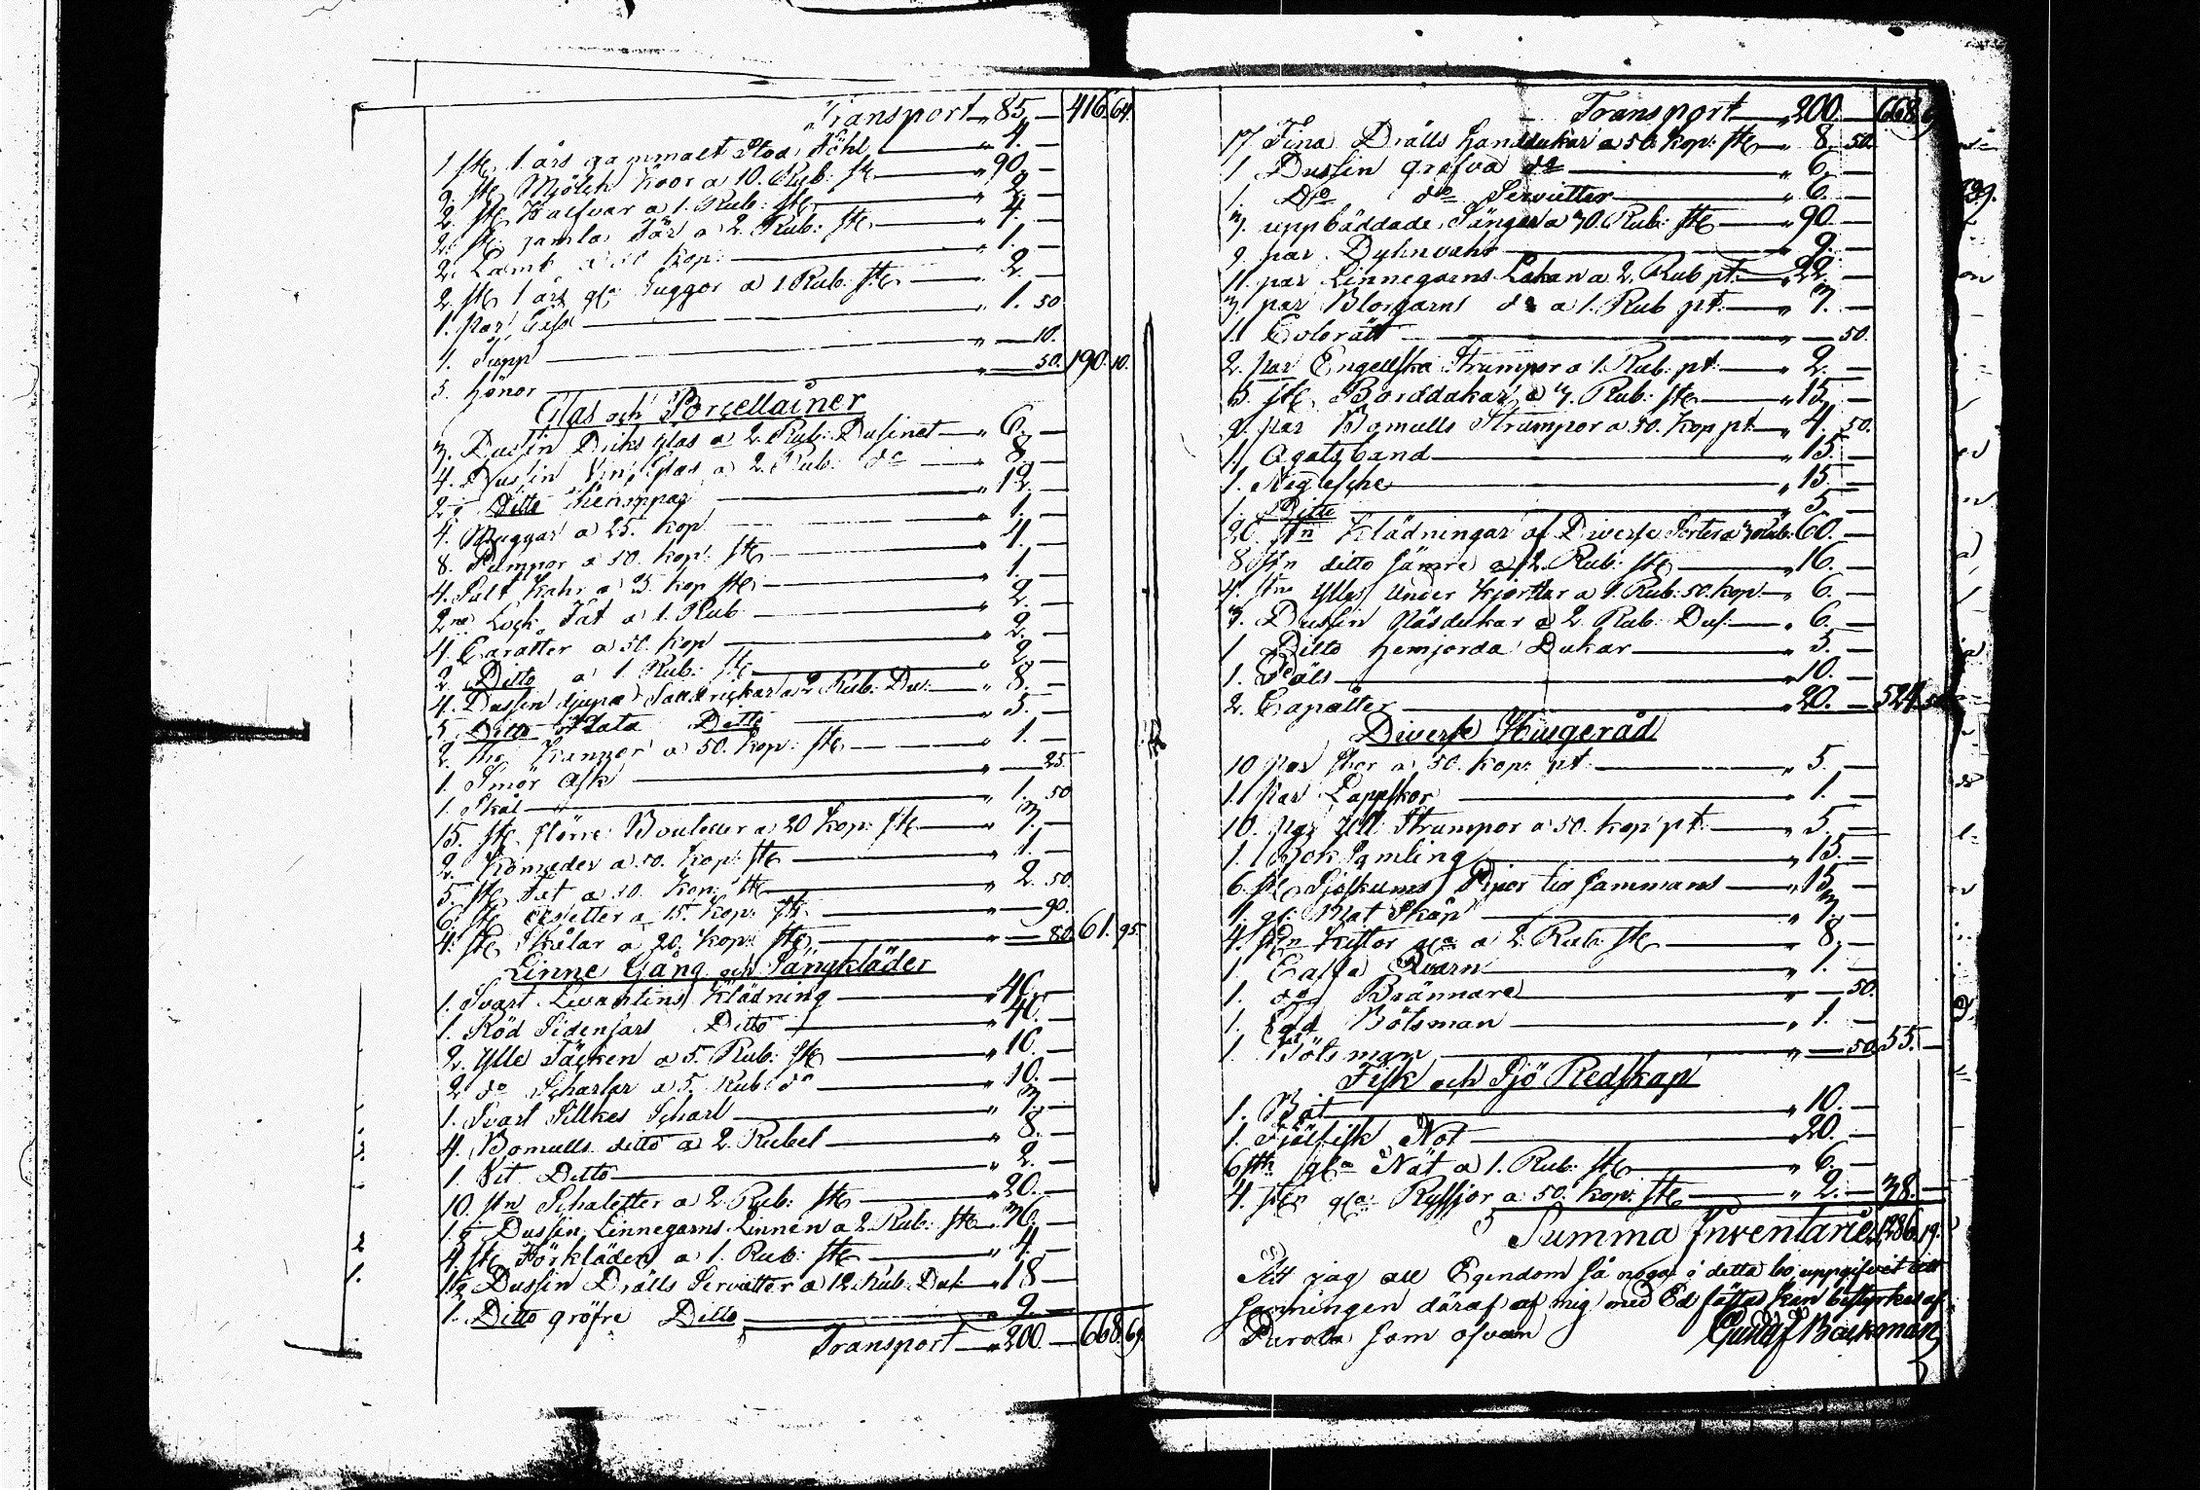 Transport „ 85. — 416. 64.
1 stk 1. års gammalt Stod Föhl „ 4. —
9. stk Mjölck Koor a 10. Rub: stk „ 90. —
2. stk Kalfvar a 1. Rub: stk „ 2. —
2. stk gamla Får a 2. Rub: stk „ 4. —
2. Lamb a 50 kop: „ 1. —
2. stk 1 års gla Suggor a 1 Rub: stk „ 2. —
1. par Gäss „ 1. 50
1. Tupp „ — 10.
5. hönor „ — 50. 190. 10.
Glas och Porcellainer
3. Dussin Dricks glas a 2. Rub: Dusinet „ 6. —
4. Dussin Vin Glas a 2. Rub: do „ 8. —
2 Ditto „ 12. —
4. Muggar a 25. kop „ 1. —
8. Pumpor a 50. kop: stk „ 4. —
4. Salt Kahr a 25. kop stk „ 1. —
2ne Lock Fat a 1. Rub „ 2. —
4. Caratter a 50. kop „ 2. —
2 Ditto a 1 Rub: stk „ 2. —
4. Dussin djupa Talldrickar a 2 Rub: Dus: „ 8. —
5. Ditto Flata Ditto „ 5. —
2. The Kannor a 50. kop: stk „ 1. —
1. Smör Ask „ — 25.
1. Skål „ 1. 50
15. stk större Bouteller a 20 kop: stk „ 3. —
2. a 50. kop: stk „ 1. —
5. stk Fat a 50. kop: stk „ 2. 50.
6. stk a 15. kop: stk „ — 90.
4. stk Skålar a 20. kop: stk „ — 80. 61. 95.
Linne Gång och Sängkläder
1. Svart Levantins Klädning „ 40. —
1. Röd Sidensars Ditto „ 40. —
2. Ylle Täcken a 5. Rub: stk „ 10. —
2 do Scharlar a 5. Rub: do „ 10. —
1. Svart Silkes Scharl „ 3. —
4. Bomulls ditto a 2. Rubel „ 8. —
1. Vit Ditto „ 2. —
10. stn Schaletter a 2. Rub: stk „ 20. —
1½ Dussin Linnegarns Linnen a 2. Rub: stk „ 36. —
4. stk Förkläden a 1. Rub: stk „ 4. —
1½ Dussin Drälls Servetter a 12. Rub. Dus: „ 18 —
1. Ditto gröfre Ditto „ 9. —
Transport „ 200. — 668. 69.
Transport „ 200. — 668. 69
17 Fina Drälls handdukar a 50. kop: stk „ 8. 50.
1 Dussin grofva do „ 6. —
1. Do do Servetter „ 6. —
3. uppbäddade Sängar a 30. Rub: stk „ 90. —
9. par Dyhnvahr „ 9. —
11. par Linnegarns Lakan a 2. Rub pt: „ 22. —
3. par Blorgarns do a 1. Rub pt: „ 3. —
1. „ — 50.
2. par Engelska Strumpor a 1. Rub. pt: „ 2. —
5. stk Borddukar a 3. Rub: stk „ 15. —
9. par Bomulls Strumpor a 50. kop pt: „ 4. 50.
1. Agatsband „ 15. —
1. Neglesche „ 15. —
1. Ditto „ 5. —
20. stn Klädningar af Diverse Sorter a 3 Rub: 60. —
8 stn ditto sämre a 2. Rub: stk „ 16. —
4. stn Ylle Under Kjortlar a 1. Rub: 50. kop „ 6. —
3. Dussin Näsdukar a 2. Rub: Dus: „ 6. —
1 Ditto hemjorda Dukar „ 5. —
1. Päls „ 10. —
2. Capåtter „ 20. — 524. 50
Diverse Husgeråd
10 par Skor a 50. kop: pt „ 5. —
1. par Lappskor „ 1. —
10. par Ull Strumpor a 50. kop pt „ 5. —
1. Bok Samling „ 15. —
6. stk Sjöskums Pipor til sammans „ 15 —
1. gl: Mat Skåp „ 3. —
4. stn Kistor gla a 2. Rub: stk „ 8. —
1. Caffe Qvarn „ 1. —
1. do Brännare „ — 50.
1. Båtsman „ 1. —
1. Båtsman „ — 50. 55. —
Fisk och Sjö Redskap
1. Båt „ 10. —
1. Not „ 20. —
6 stk gla Nät a 1. Rub: stk „ 6. —
4. stn gla Ryssjor a 50. kop: stk „ 2. — 38. —
Summa Inventarie 1286. 19.
Att jag all Egendom så noga i detta bo uppgifvit att
sanningen däraf af mig med Ed fästas kan bestyrkes af
som ofvan Gustaf Backman